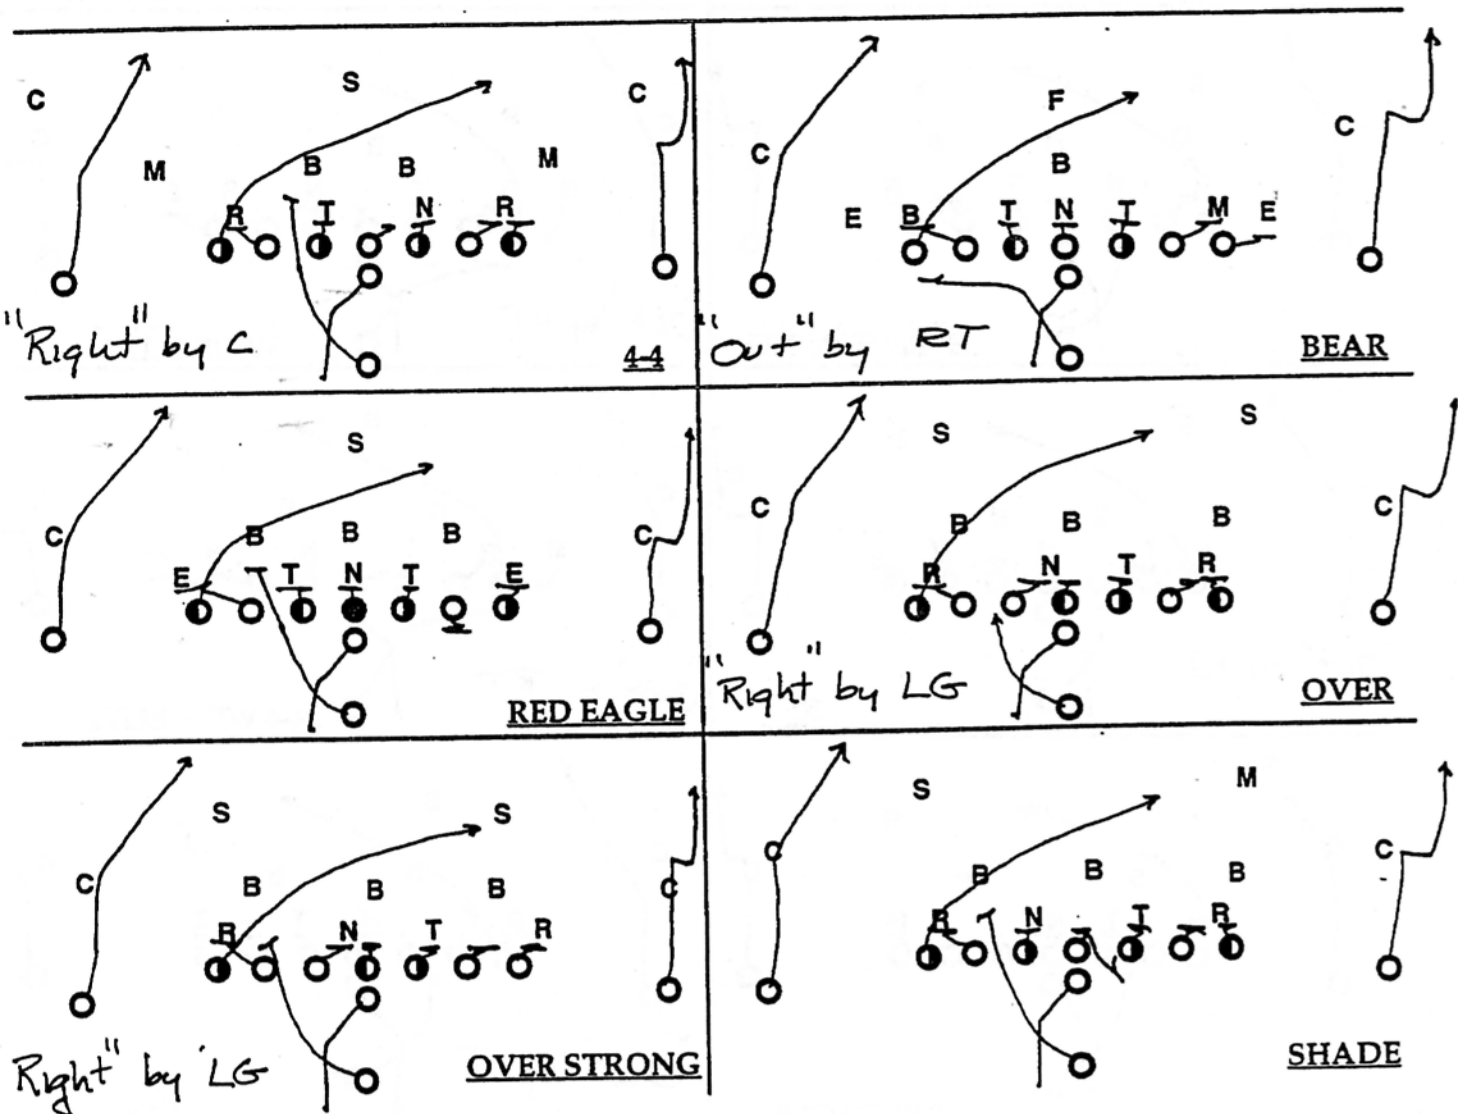 C S C
M B B M
R T N R
"Right" by C
4-4
F
C B C
E B T N T M E
"Out" by RT
BEAR
S
C B B B C
E T N T E
RED EAGLE
S S
C B B B C
R N T R
"Right" by LG
OVER
S S
C B B B C
R N T R
Right" by LG
OVER STRONG
S M
C B B B C
R N T R
SHADE